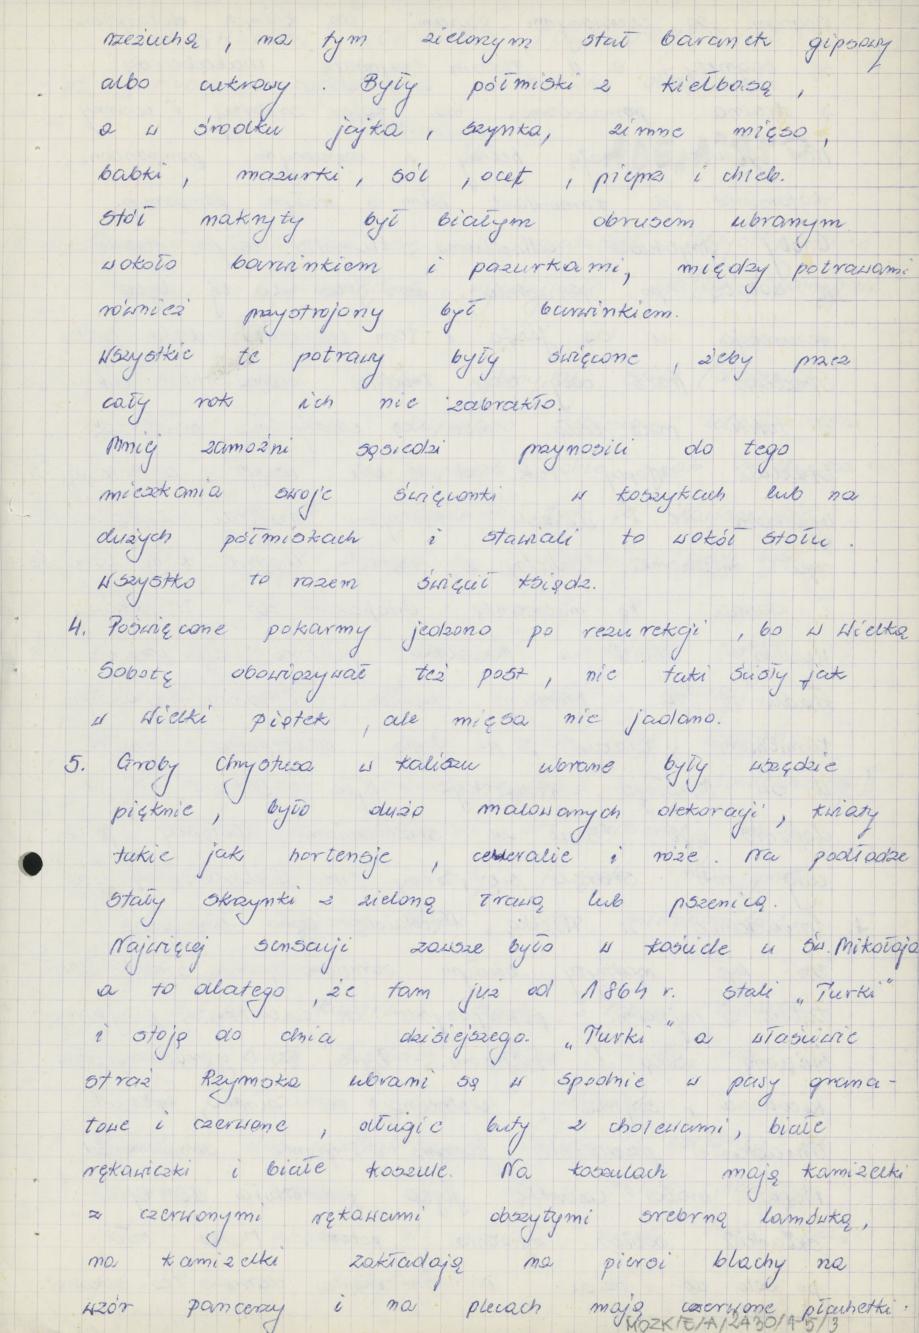 rzeżuchą, na tym zielonym stał baranek gipsowy
albo cukrowy. Były półmiski z kiełbasą,
a w środku jajka, szynka, zimne mięso,
babki, mazurki, sól, ocet, pieprz i chleb.
Stół nakryty był białym obrusem ubranym
wokoło barwinkiem i pazurkami, między potrawami
również przystrojony był barwinkiem.
Wszystkie te potrawy były święcone, żeby przez
cały rok ich nie zabrakło.
Mniej zamożni sąsiedzi przynosili do tego
mieszkania swoje święconki w koszykach lub na
dużych półmiskach i stawiali to wokół stołu.
Wszystko to razem święcił ksiądz.
4. Poświęcone pokarmy jedzono po rezurekcji, bo w Wielką
Sobotę obowiązywał też post, nie taki ścisły jak
w Wielki piątek, ale mięsa nie jadano.
5. Groby Chrystusa w Kaliszu ubrane były wszędzie
pięknie, było dużo malowanych dekoracji, kwiaty
takie jak hortensje, i róże. Na podłodze
stały skrzynki z zieloną trawą lub pszenicą.
Najwięcej sensacji zawsze było w kościele u św. Mikołaja
a to dlatego, że tam już od 1864 r. stali „Turki"
i stoją do dnia dzisiejszego. „Turki" a właściwie
straż Rzymska ubrani są w spodnie w pasy grana-
towe i czerwone, długie buty z cholewami, białe
rękawiczki i białe koszule. Na koszulach mają kamizelki
z czerwonymi rękawami obszytymi srebrną lamówką,
na kamizelki zakładają na piersi blachy na
wzór pancerzy i na plecach mają czerwone płachetki.
MOZK/E/A/2430/1-5/3